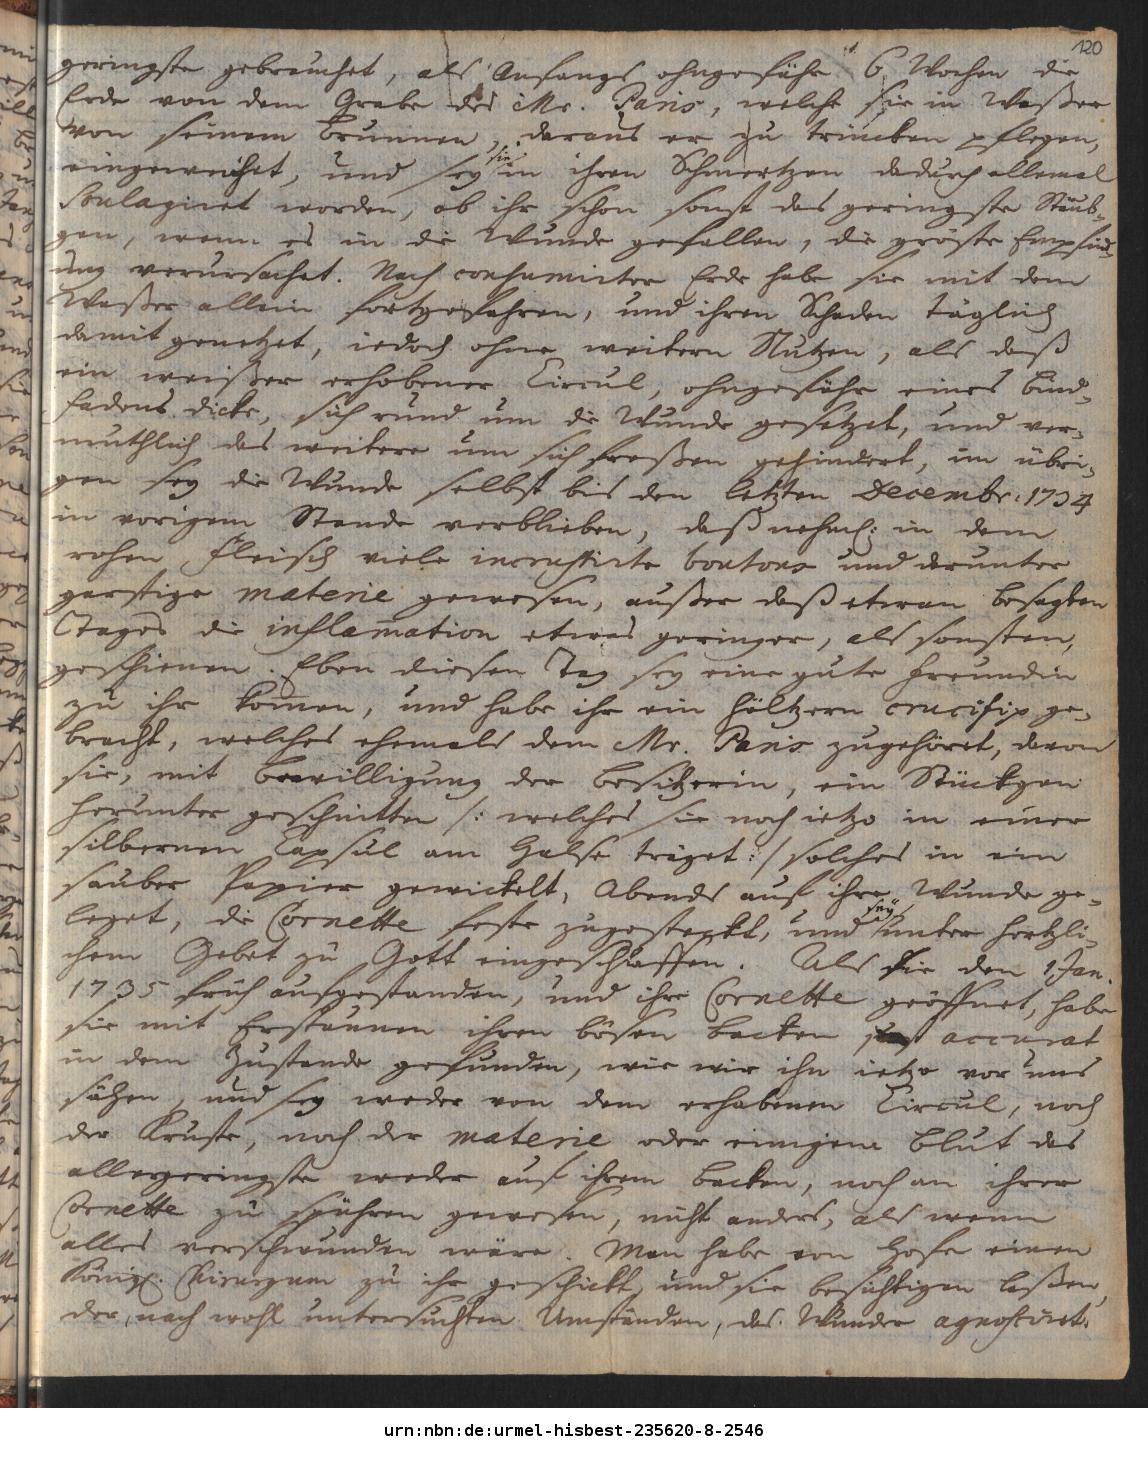 120
geringste gebrauchet, als Anfangs ohngefähr 6 Wochen die
Erde von dem Grabe des Mr. Paris, welche sie in Waßer
von seinem Brunnen, daraus er zu trincken pflegen,
eingeweichet, und sey sie in ihren Schmertzen dadurch allemal
soulagiret worden, ob ihr schon sonst das geringste Stäub-
gen, wenn es in die Wunde gefallen, die gröste Empfind-
ung verursachet. Nach consumirter Erde habe sie mit dem
Waßer allein fortgefahren, und ihren Schaden täglich
damit genetzet, iedoch ohne weitern Nutzen, als daß
ein weißer erhobener Circul, ohngefähr eines Bind-
fadens dicke, sich rund um die Wunde gesetzet, und ver-
muthlich das weitere um sich freßen gehindert, im übri-
gen sey die Wunde selbst bis den letzten Decembr: 1734
in vorigem Stande verblieben, daß nehml: in dem
rohen Fleisch viele incrustirte boutons und darunter
garstige materie gewesen, außer daß etwan besagten
Tages die inflamation etwas geringer, als sonsten,
geschienen. Eben diesen Tag sey eine gute Freundin
zu ihr komen, und habe ihr ein höltzern crucifix ge-
bracht, welches ehemals dem Mr. Paris zugehöret, davon
sie, mit Bewilligung der Besitzerin, ein Stückgen
herunter geschnitten /: welches sie noch ietzo in einer
silbernen Capsul am Halse träget :/ solches in ein
sauber Papier gewickelt, Abends auf ihre Wunde ge-
leget, die Cornette feste zugesteckt, und sey unter hertzli-
chem Gebet zu Gott eingeschlaffen. Als sie den 1. Jan.
1735 früh aufgestanden, und ihre Cornette geöffnet, habe
sie mit Erstaunen ihren bösen Backen accurat
in dem Zustande gefunden, wie wir ihn ietzo vor uns
sähen, und sey weder von dem erhabenen Circul, noch
der Kruste, noch der materie oder einigem Blut das
allergeringste weder auf ihrem Backen, noch an ihrer
Cornette zu spühren gewesen, nicht anders, als wenn
alles verschwunden wäre. Man habe von Hofe einen
Königl. Chirurgum zu ihr geschickt, und sie besichtigen laßen,
der, nach wohl untersuchten Umständen, das Wunder agnosciret.
urn:nbn:de:urmel-hisbest-235620-8-2546